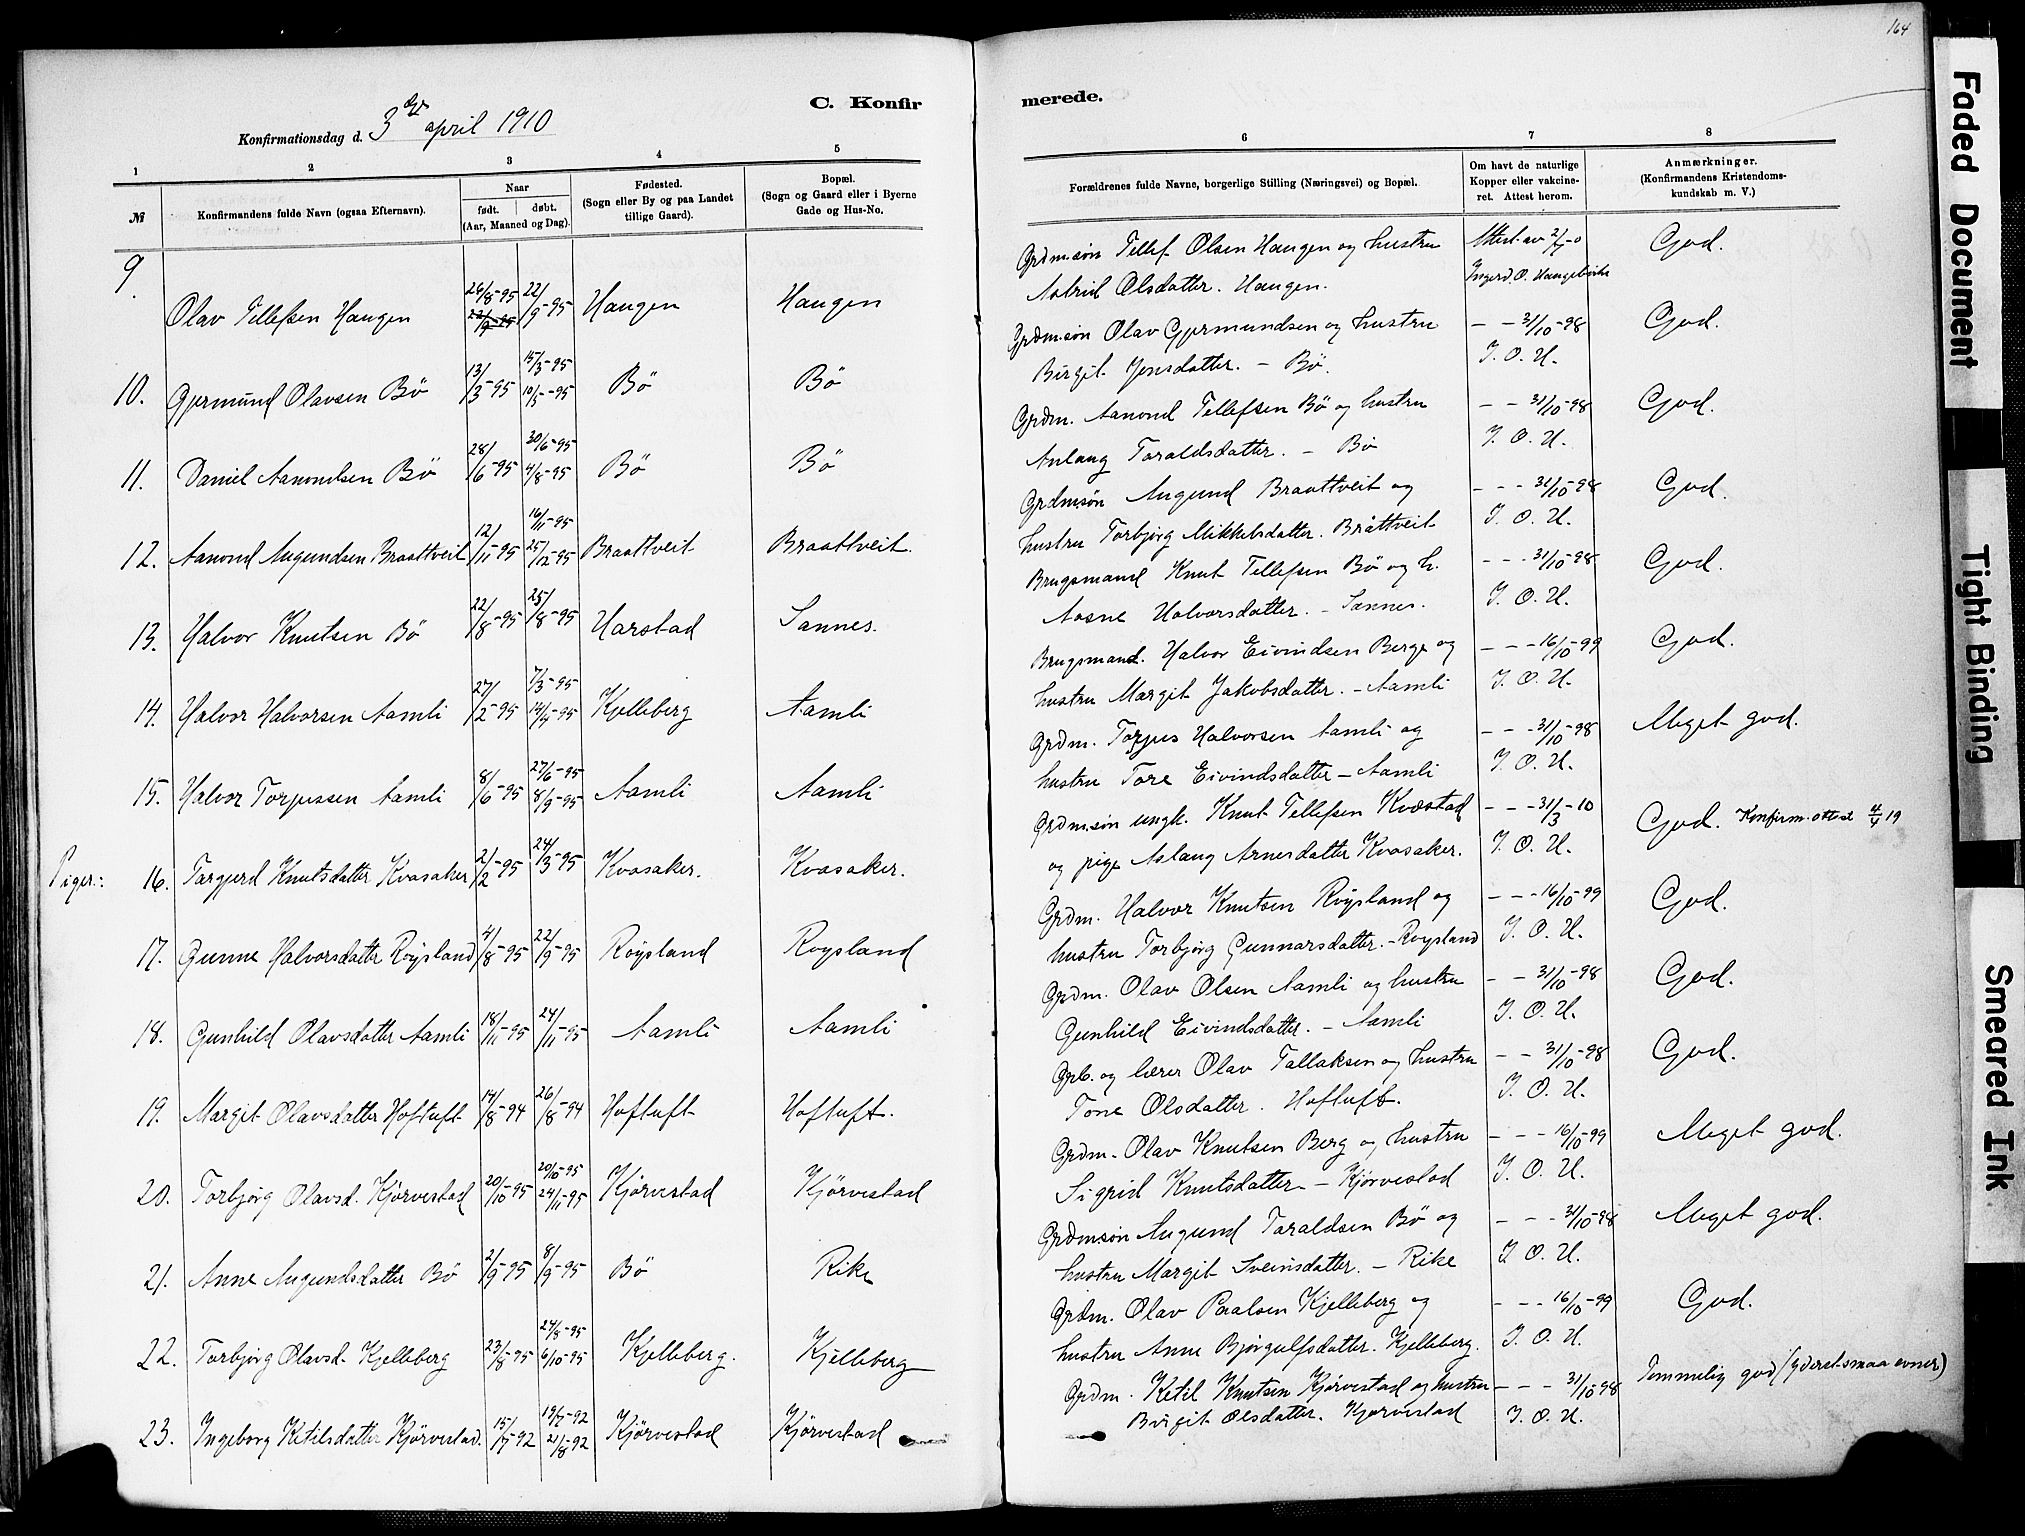 164
C. Konfirmerede.
Konfirmationsdag d. 3die april 1910
1 2 3 4 5 6 7 8
№
Konfirmandens fulde Navn (ogsaa Efternavn).
Naar
født. døbt.
(Aar, Maaned og Dag).
Fødested.
(Sogn eller By og paa Landet
tillige Gaard).
Bopæl.
(Sogn og Gaard eller i Byerne
Gade og Hus-No.
Forældrenes fulde Navne, borgerlige Stilling (Næringsvei) og Bopæl.
Om havt de naturlige
Kopper eller vakcine-
ret. Attest herom.
Anmærkninger.
(Konfirmandens Kristendoms-
kundskab m. V.)
9. Olav Tellefsen Haugen 26/8-95 22/9-95 22/9-95 Haugen Haugen
Grdm.søn Tellef Olsen Haugen og hustru
Astrid Olsdatter. Haugen.
Attest av
Ingerd O.
God.
10. Gjermund Olavsen Bö 13/3-95 15/3-95 10/5-95 Bö Bö
Grdm.søn Olav Gjermundsen og hustru
Birgit Jonsdatter. – Bö.
– – 31/10-98
I. O. H.
God.
11. Daniel Aanondsen Bö 28/6-95 30/6-95 4/8-95 Bö Bö
Grdm. Aanond Tellefsen Bö og hustru
Aslaug Taraldsdatter. – Bö
– – 31/10-98
I. O. H.
God.
12. Aanond Augundsen Braattveit 12/11-95 16/11-95 25/12-95 Braattveit Braattveit.
Grdm.søn Augund Braattveit og
hustru Torbjörg Mikkelsdatter. Bråttveit
– – – 31/10-98
I. O. H.
God.
13. Halvor Knutsen Bö 22/8-95 25/8-95 Harstad Sannes.
Brugsmand Knut Tellefsen Bö og h.
Aasne Halvorsdatter. – Sannes.
– – – 31/10-98
I. O. H.
God.
14. Halvor Halvorsen Aamli 27/2-95 7/3-95 14/4-95 Kjelleberg Aamli
Brugsmand. Halvor Eivindsen Berge og
hustru Margit Jakobsdatter. – Aamli
– – – 16/10-99
I. O. H.
God.
15. Halvor Torjussen Aamli 8/6-95 27/6-95 8/9-95 Aamli Aamli
Grdm. Torjus Halvorsen Aamli og
hustru Tore Eivindsdatter – Aamli
– – – 31/10-98
I. O. H.
Meget god.
Piger:
16. Targjerd Knutsdatter Kvasaker 2/2-95 24/3-95 Kvasaker. Kvasaker.
Grdm.søn ungk. Knut Tellefsen Kvæstad
og pige Aslaug Arnesdatter Kvasaker.
– – – 31/3-10
I. O. H.
God. Konfirm.attest 4/4 19
17. Gunne Halvorsdatter Röysland 4/8-95 22/9-95 Röysland Röysland
Grdm. Halvor Knutsen Röysland og
hustru Torbjörg Gunnarsdatter. – Röysland
– – – 16/10-99
I. O. H.
God.
18. Gunhild Olavsdatter Aamli 18/11-95 24/11-95 Aamli Aamli
Grdm. Olav Olsen Aamli og hustru
Gunhild Eivindsdatter. – Aamli
– – 31/10-98
I. O. H.
God.
19. Margit Olavsdatter Hoftuft 14/8-94 26/8-94 Hoftuft Hoftuft.
Grb. og lærer Olav Tallaksen og hustru
Tone Olsdatter. Hoftuft.
– – 31/10-98
I. O. H.
God.
20. Torbjörg Olavsd. Kjörvestad 20/10-95 20/10-95 24/11-95 Kjörvestad Kjörvestad
Grdm. Olav Knutsen Berg og hustru
Sigrid Knutsdatter – Kjörvestad
– – – 16/10-99
I. O. H.
Meget god.
21. Anne Augundsdatter Bö 2/9-95 8/9-95 Bö Rike
Grdm.søn Augund Taraldsen Bö og
hustru Margit Sveinsdatter. – Rike
– – – 31/10-98
I. O. H.
Meget god.
22. Torbjörg Olavsd. Kjelleberg 23/8-95 24/8-95 6/10-95 Kjelleberg. Kjelleberg
Grdm. Olav Paalsen Kjelleberg og
hustru Anne Bjørgulfsdatter. Kjelleberg.
– – – 16/10-99
I. O. H.
God.
23. Ingeborg Ketilsdatter Kjörvestad. 15/7-92 19/7-92 21/8-92 Kjörvestad Kjörvestad
Grdm. Ketil Knutsen Kjörvestad og hustru
Birgit Olsdatter. Kjörvestad
– – – 31/10-98
I. O. H.
Temmelig god (yderst smaa evner)
Faded Document
Tight Binding
Smeared Ink